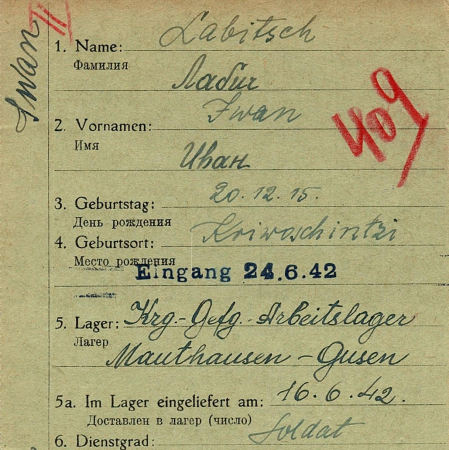 Iwan II
1. Name: Labitsch
Фамилия
Лабич
2. Vornamen: Iwan
Имя
Иван
409
3. Geburtstag: 20.12.15.
День рождения
4. Geburtsort: Kriwoschintzi
Место рождения
Eingang 24.6.42
5. Lager: Krg.-Gefg.-Arbeitslager
Лагер
Mauthausen-Gusen
5a. Im Lager eingeliefert am: 16.6.42.
Доставлен в лагер (число)
6. Dienstgrad: Soldat